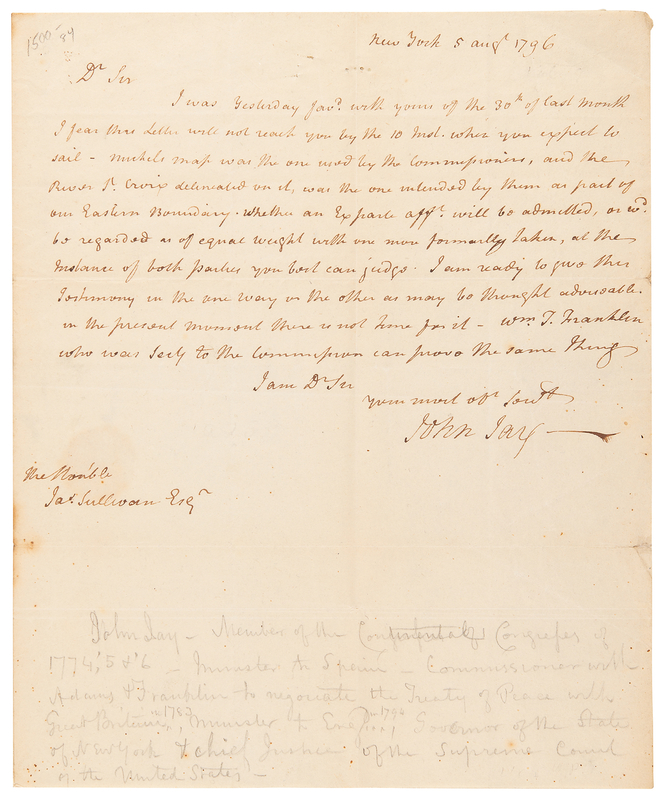 1500- 84
New York 5 augt 1796
Dr Sir
I was Yesterday favd. with yours of the 30th of Last Month
I fear this Letter will not reach you by the 10 Inst. when you expect to
sail - Michels map was the one used by the Commissioners, and the
River St. Croix delineated on it, was the one intended by them as part of
our Eastern Boundary. Whether an Exparte afft. will be admitted, or wd.
be regarded as of equal weight with one more formally taken, at the
Instance of both parties you best can judge. I am ready to give this
Testimony in the one way or the other as may be thought adviseable.
in the present moment there is not time for it - Wm. T. Franklin
who was Secy to the Commission can prove the same Thing
I am Dr Sir
your most obt Servt
John Jay
The Honble
Jas. Sullivan Esqr
John Jay - Member of the Continental Congress of
1774, '5 & '6 - Minister to Spain - Commissioner with
Adams & Franklin to negotiate the Treaty of Peace with
Great Britain in 1783, Minister to England in 1794, Governor of the State
of New York & Chief Justice of the Supreme Court
of the United States -